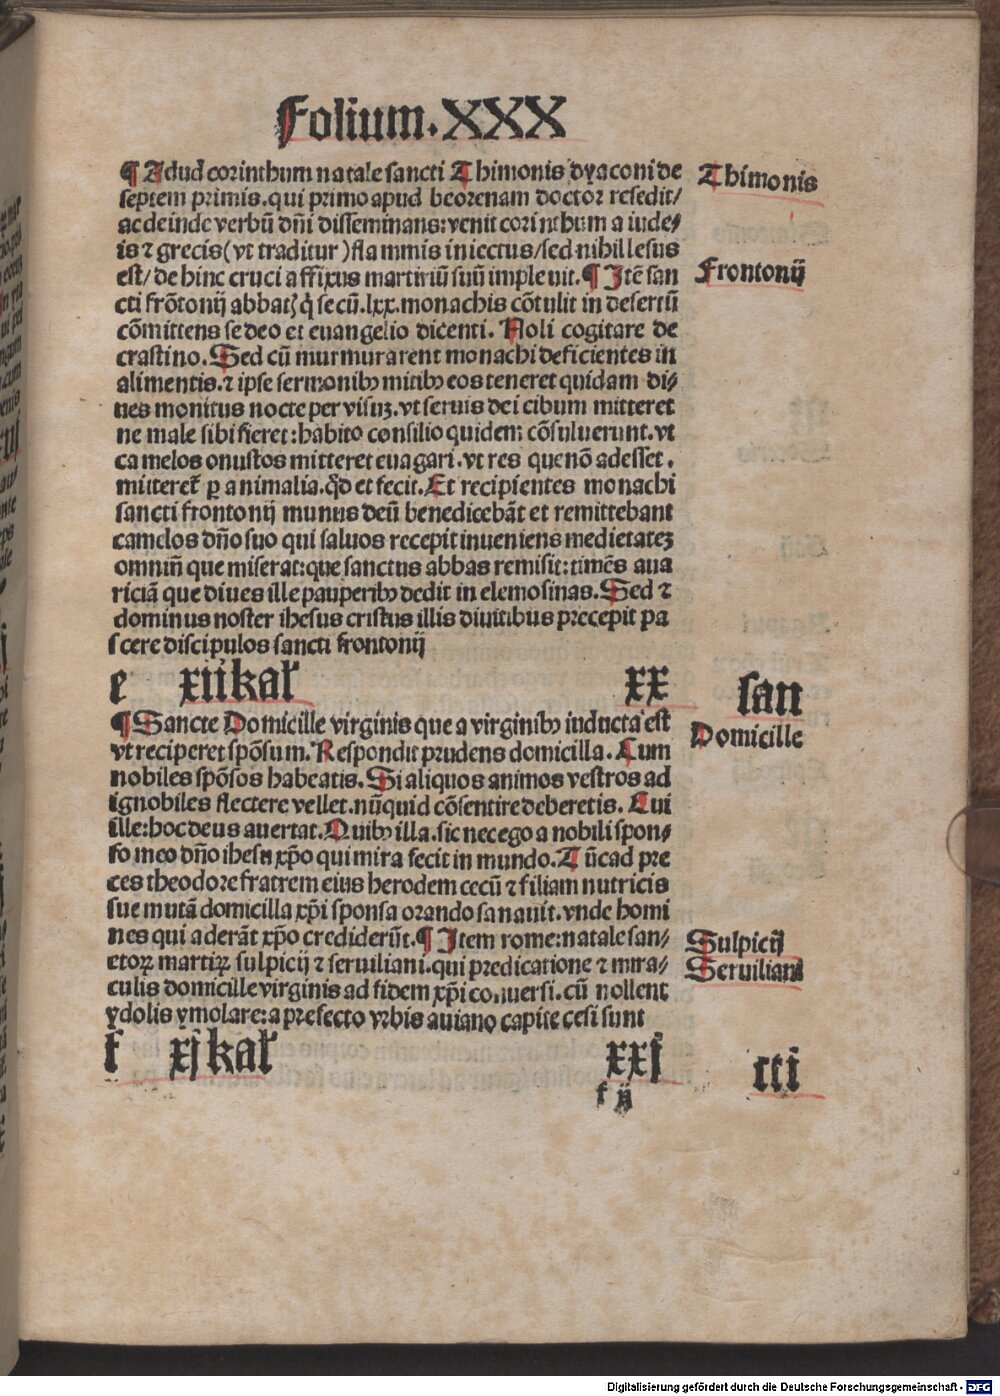 Folium.XXX
¶ Adud corinthum natale sancti Thimonis dyaconi de
septem primis.qui primo apud beorenam doctor resedit/
ac deinde verbū dñi disseminans:venit corinthum a iude⸗
is ⁊ grecis(vt traditur)flammis iniectus/sed nihil lesus
est/de hinc cruci affixus martiriū suū impleuit.¶ Itē san
cti frōtonij abbatꝭ q̇ secū.lxx.monachis cōtulit in desertū
cōmittens se deo et euangelio dicenti. Noli cogitare de
crastino. Sed cū murmurarent monachi deficientes in
alimentis.⁊ ipse sermonibꝰ mitibꝰ eos teneret quidam di⸗
nes monitus nocte per visuꝫ.vt seruis dei cibum mitteret
ne male sibi fieret:habito consilio quidem cōsuluerunt.vt
camelos onustos mitteret euagari.vt res que nō adesset.
mitteret᷑ ꝑ animalia.qd̓ et fecit. Et recipientes monachi
sancti frontonij munus deū benedicebāt et remittebant
camelos dño suo qui saluos recepit inueniens medietateꝫ
omniuꝫ que miserat:que sanctus abbas remisit:timēs aua
riciā que diues ille pauperibꝰ dedit in elemosinas. Sed ⁊
dominus noster ihesus cristus illis diuitibus precepit pa
scere discipulos sancti frontonij
e xij kal̓ xx san
¶ Sancte Domicille virginis que a virginibꝰ inducta est
vt reciperet spōsum. Respondit prudens domicilla. Cum
nobiles spōsos habeatis. Si aliquos animos vestros ad
ignobiles flectere vellet.nūquid cōsentire deberetis. Cui
ille:hoc deus auertat. Quibꝰ illa.sic nec ego a nobili spon⸗
so meo dño ihesu xp̄o qui mira fecit in mundo. Tūc ad pre
ces theodore fratrem eius herodem cecū ⁊ filiam nutricis
sue mutā domicilla xp̄i sponsa orando sanauit.vnde homi
nes qui aderāt xp̄o crediderūt.¶ Item rome:natale san⸗
ctoꝝ martiꝝ sulpicij ⁊ seruiliani.qui predicatione ⁊ mira⸗
culis domicille virginis ad fidem xp̄i conuersi.cū nollent
ydolis ymolare:a prefecto vrbis auiano capite cesi sunt
f xj kal̓ xxj cti
f ij
Thimonis
Frontonij
Domicille
Sulpicij
Seruiliani